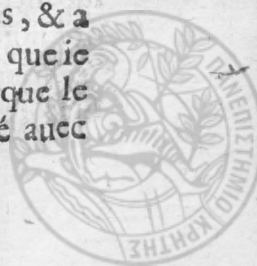 s, & a
que ie
que le
é auec
ΠΑΝΕΠΙΣΤΗΜΙΟ ΚΡΗΤΗΣ